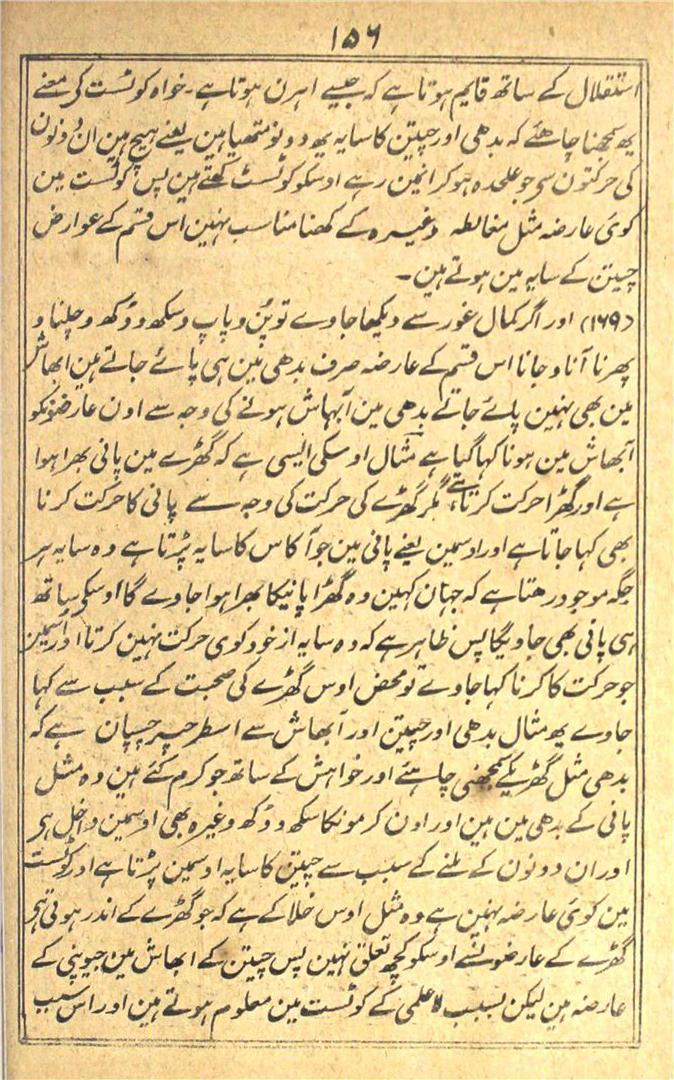 ۱۵۶
استقلال کے ساتھ قایم ہوتا ہے کہ جیسے اہرن ہوتا ہے۔ خواہ کوٹست کے معنے
یہ سمجھنا چاہئے کہ بدھی اور چیتن کا سایہ یہ دونو متھیا ہین یعنے ہیچ ہین ان دونون
کی حرکتون سے جو علحدہ ہوکر انمین رہے اوسکو کوٹست کہتے ہین پس کوٹست مین
کوئ عارضہ مثل مغالطہ وغیرہ کے کہنا مناسب نہین اس قسم کے عوارض
چیتن کے سایہ مین ہوتے ہین۔
(۱۶۹) اور اگر کمال غور سے دیکھا جاوے تو پُن و پاپ و سکھ و دُکھ و چلنا و
پھرنا آنا و جانا اس قسم کے عارضہ صرف بدھی مین ہی پائے جاتے ہین ابھاش
مین بھی نہین پائے جاتے بدھی مین آبہاش ہونے کی وجہ سے اون عارضونکو
آبھاش مین ہونا کہا گیا ہے مثال اوسکی ایسی ہے کہ گھڑے مین پانی بھرا ہوا
ہے اور گھڑا حرکت کرتا ہے مگر گھڑے کی حرکت کی وجہ سے پانی کا حرکت کرنا
بھی کہا جاتا ہے اور اوسمین یعنے پانی مین جو آکاس کا سایہ پڑتا ہے وہ سایہ ہر
جگہ موجود رہتا ہے کہ جہان کہین وہ گھڑا پانیکا بھرا ہوا جاوے گا اوسکے ساتھ
ہی پانی بھی جاویگا پس ظاہر ہے کہ وہ سایہ از خود کوی حرکت نہین کرتا اور اسمین
جو حرکت کا کرنا کہا جاوے تو محض اوس گھڑے کی صحبت کے سبب سے کہا
جاوے یہ مثال بدھی اور چیتن اور آبھاش سے اسطرحپر چسپان ہے کہ
بدھی مثل گھڑیکے سمجھنی چاہئے اور خواہش کے ساتھ جو کرم کئے ہین وہ مثل
پانی کے بدھی مین ہین اور اون کرمونکا سکھ و دُکھ وغیرہ بھی اوسمین داخل ہی
اور ان دونون کے ملنے کے سبب سے چیتن کا سایہ اوسمین پڑتا ہے اور کوٹست
مین کوئ عارضہ نہین ہے وہ مثل اوس خلا کے ہے کہ جو گھڑے کے اندر ہوتی ہی
گھڑے کے عارضونسے اوسکو کچھ تعلق نہین پس چیتن کے ابھاش مین جیوپنی کے
عارضہ ہین لیکن بسبب لاعلمی کے کوٹست مین معلوم ہوتے ہین اور اس سبب